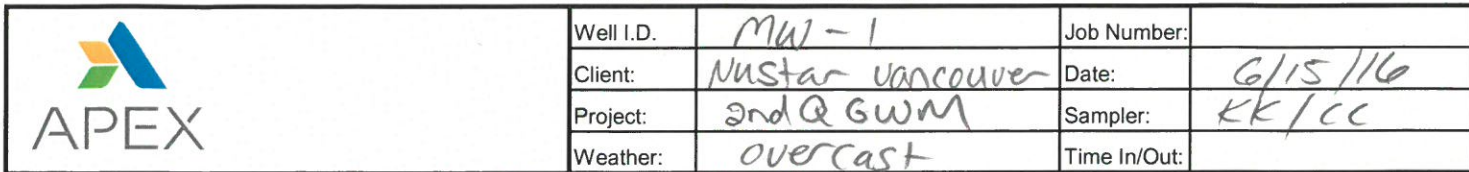 APEX
Well I.D. MW-1 Job Number:
Client: Nustar Vancouver Date: 6/15/16
Project: 2nd Q GWM Sampler: KK/CC
Weather: overcast Time In/Out: